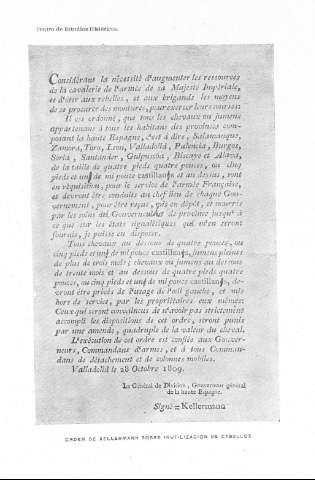 Centro de Estudios Históricos.
Considérant la nécessité d'augmenter les ressources
de la cavalerie de l'armée de sa Majesté Impériale,
et d'oter aux rebelles, et aux brigands les moyens
de se procurer des montures, pour exercer leurs courses:
Il est ordonné, que tous les chevaux ou jumens
appartenans à tous les habitans des provinces com-
posant la haute Espagne, c'est à dire, Salamanque,
Zamora, Toro, Leon, Valladolid, Palencia, Burgos,
Soria, Santander, Guipuscoa, Biscaye et Alava,
de la taille de quatre pieds quatre pouces, ou cinq
pieds et un de mi pouce castillans et au dessus, sont
en réquisition, pour le service de l'armée Française,
et devront être conduits au chef lieu de chaque Gou-
vernement, pour être reçus, mis en dépôt, et nourris
par les soins du Gouverneur de province jusqu' à
ce que sur les états signalétiques qui m'en seront
fournis, je puisse en disposer.
Tous chevaux au dessous de quatre pouces, ou
cinq pieds et un de mi pouce castillans, jumens pleines
de plus de trois mois; chevaux ou jumens au dessous
de trente mois et au dessous de quatre pieds quatre
pouces, ou cinq pieds et un de mi pouce castillans, de-
vront être privés de l'usage de l'oeil gauche, et mis
hors de service, par les propriétaires aux mêmes:
Ceux qui seront convaincus de n'avoir pas strictement
accompli les dispositions de cet ordre, seront punis
par une amende, quadruple de la valeur du cheval.
L'exécution de cet ordre est confiée aux Gouver-
neurs, Commandants d'armes, et à tous Comman-
dans de détachement et de colonnes mobiles.
Valladolid le 28 Octobre 1809.
Le Général de Division, Gouverneur général
de la haute Espagne.
Signé = Kellermann
ORDEN DE KELLERMANN SOBRE INUTILIZACIÓN DE CABALLOS